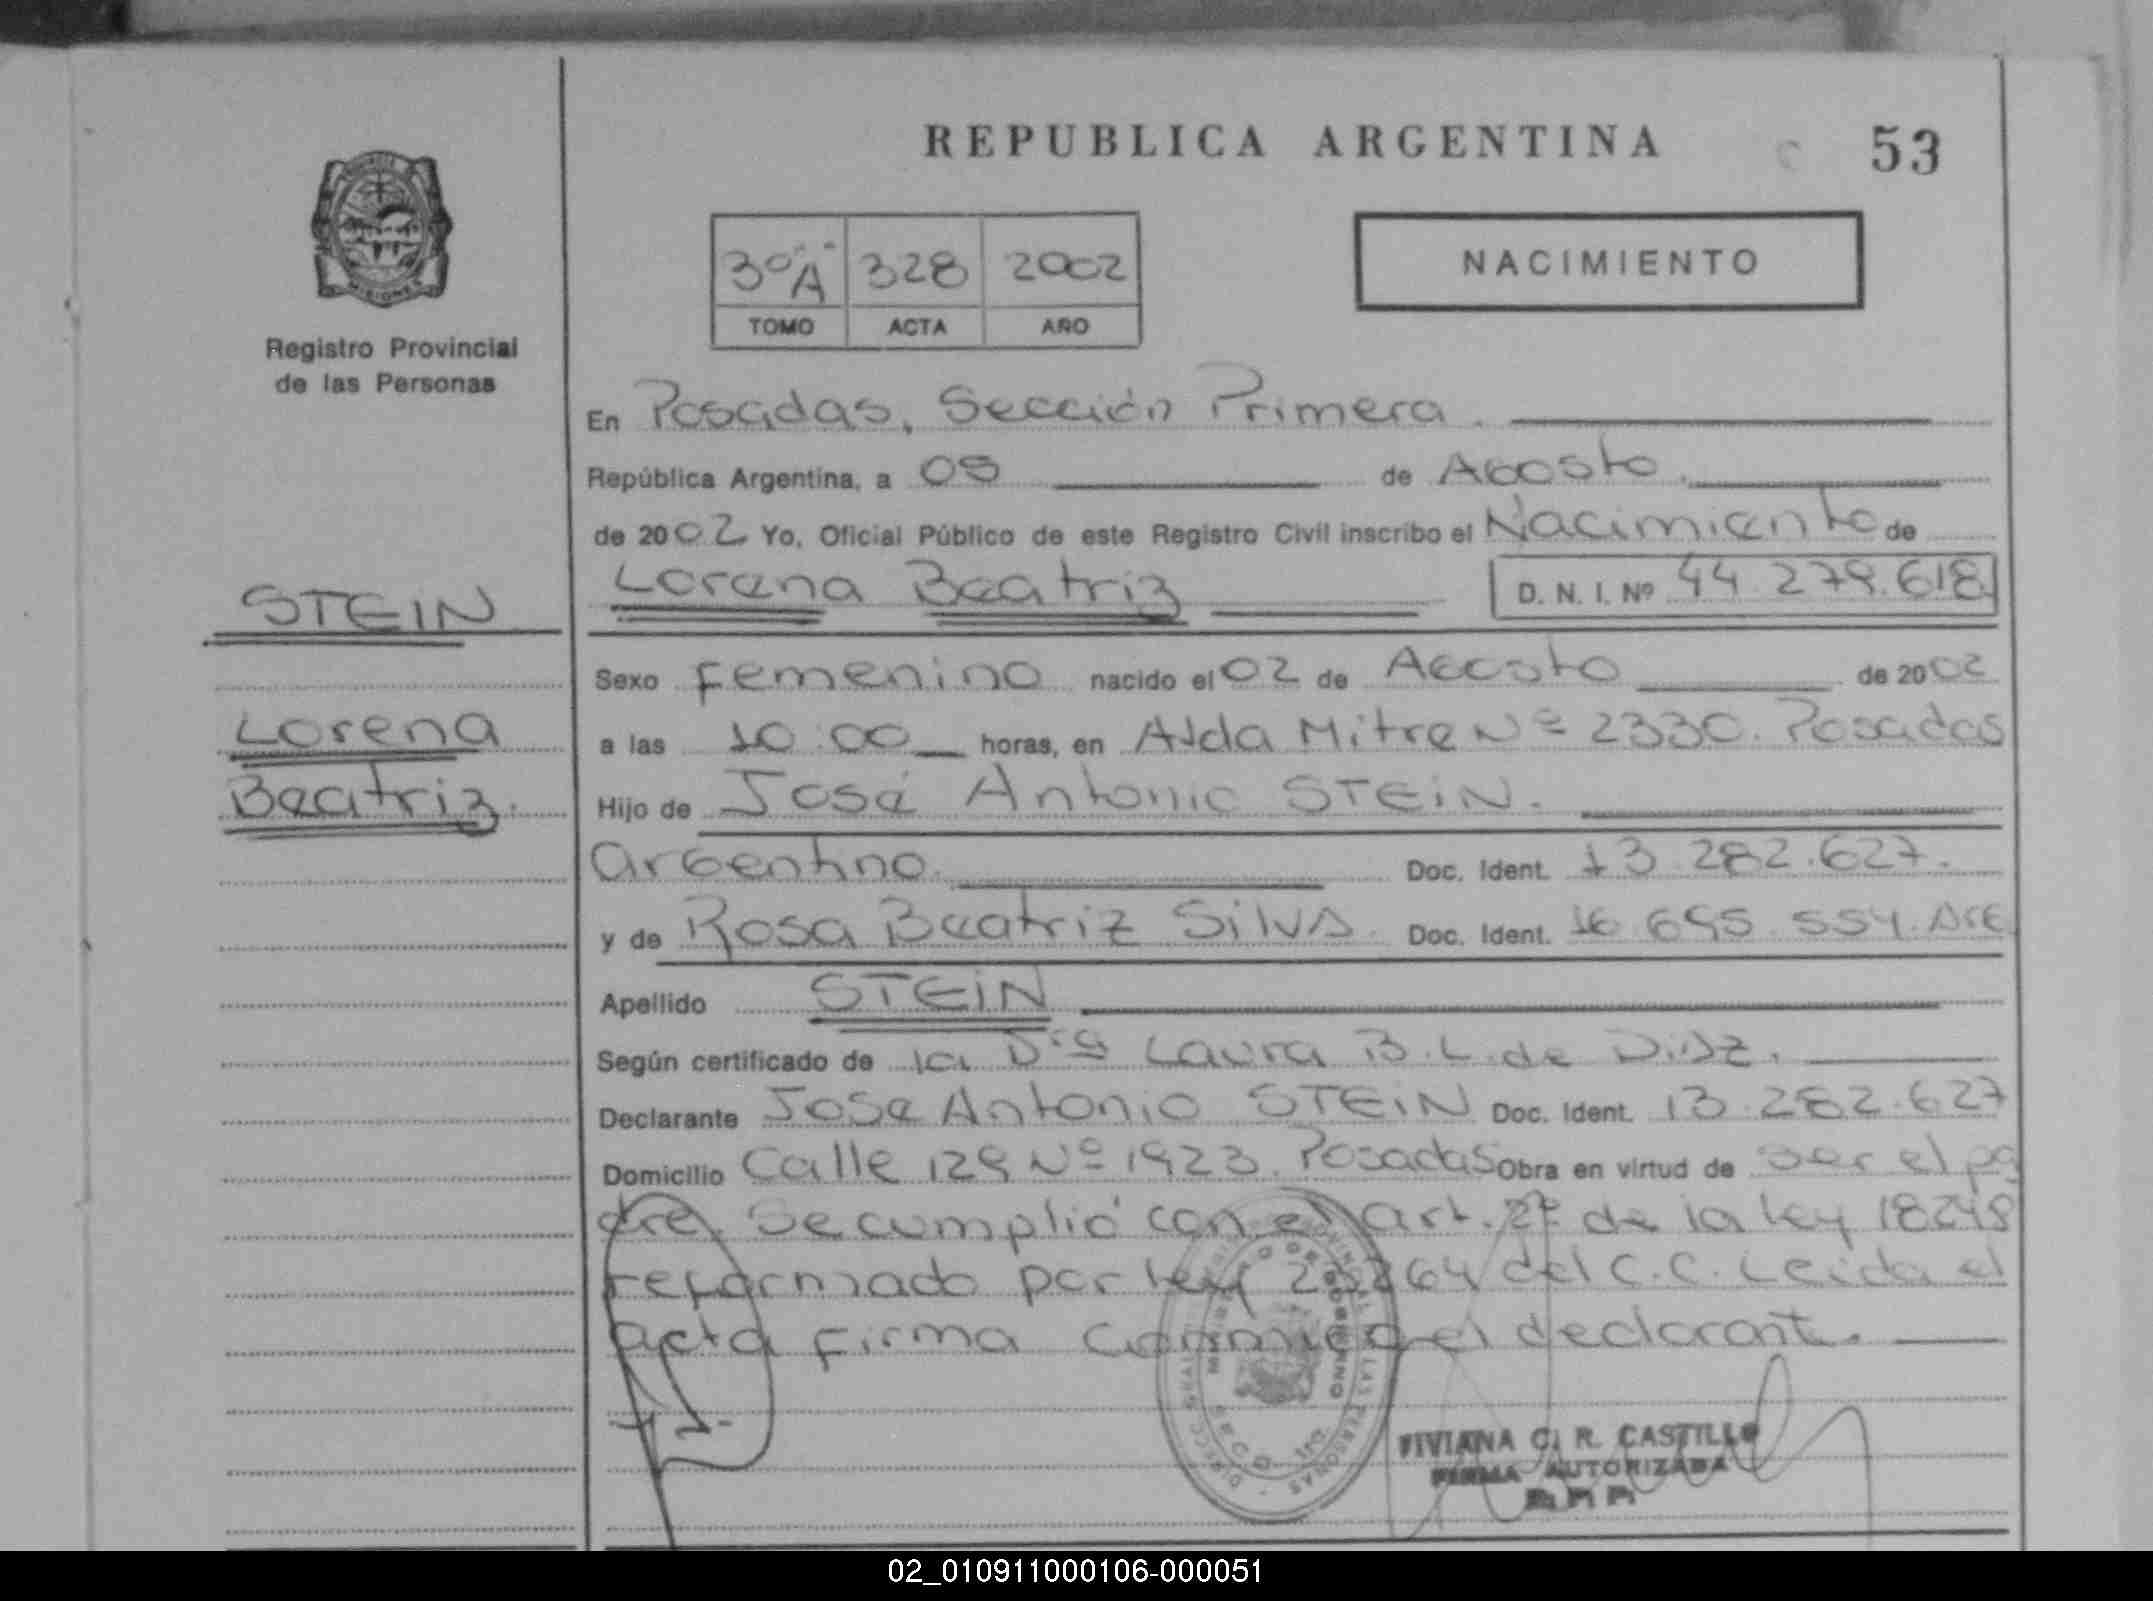 REPUBLICA ARGENTINA
53
MISIONES
Registro Provincial
de las Personas
3º "A" 328 2002
TOMO ACTA AÑO
NACIMIENTO
En Posadas, Sección Primera.
República Argentina, a 05 de Agosto
de 2002 Yo, Oficial Público de este Registro Civil inscribo el Nacimiento de
Lorena Beatriz D. N. I. Nº 44.279.618
STEIN
Sexo femenino nacido el 02 de Agosto de 2002
Lorena
a las 10:00 horas, en Avda Mitre Nº 2330. Posadas
Beatriz.
Hijo de José Antonio STEIN.
argentino. Doc. Ident. 13.282.627.
y de Rosa Beatriz Silva. Doc. Ident. 16.695.554. Arg
Apellido STEIN
Según certificado de la Dra Laura B. L. de Diaz.
Declarante Jose Antonio STEIN Doc. Ident. 13.282.627
Domicilio Calle 129 Nº 1923. Posadas Obra en virtud de ser el pa
dre. Se cumplió con el art. 2º de la ley 18248
reformado por ley 23264 del C.C. Leida el
acta firma conmigo el declarante.
VIVIANA C. R. CASTILLO
FIRMA AUTORIZADA
02_010911000106-000051